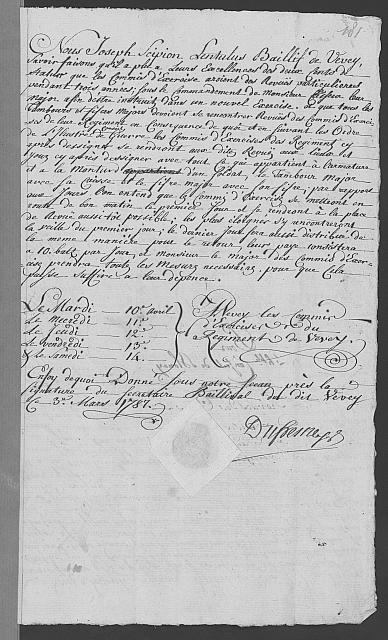 Nous Joseph Scipion Lentulus Baillif de Vevey,
Savoir faisons qu'il a plû a Leurs Excellences des deux Cents de
Statuer que les Commis d'Exercise auroient des Revües particulieres
pendant trois années; sous le Commandement de Monsieur leur
Major afin d'etre instruit dans un nouvel Exercise. Et que tous les
Tambours et fifres Majors devroient se rencontrer Revües des Commis d'Exerci-
ses de leur Regiment en Consequence de quoi et en suivant les Ordre
de l'Illustre les Commis d'Exercises des Regiment cy
après designé se rendront aux dits Revües aux Lieux et
jours cy après designer avec tout ce qui appartient a l'armature
et a la monture d'un Soldat, le Tambour Major
avec sa Caisse et le fifre major avec son fifre; par rapport
aux Jours l'on entend que les Commis d'Exercise se mettront en
route de bon matin le premier Jour et se rendront a la place
de Revüe aussi tôt possible; les plus eloignés s'y rencontreront
la veille du premier jour; le dernier jour sera aussi distribué de
la meme maniere pour le retour, leur paye consistera
a 10. batz par Jour, et monsieur le major des Commis d'Exer-
cise prendra tout les mesures necessaires pour que cela
puisse suffire a leur depence.
Le Mardi — 10e avril
Le Mecredi — 11e
Le Jeudi — 12e
Le Vendredi — 13e
& le Samedi — 14.
A Vevey les Commis
d'exercises du
Regiment de Vevey.
En foy dequoi Donné sous notre sceau près la
signature du Secretaire Baillival du dit Vevey
Ce 3e Mars 1787.